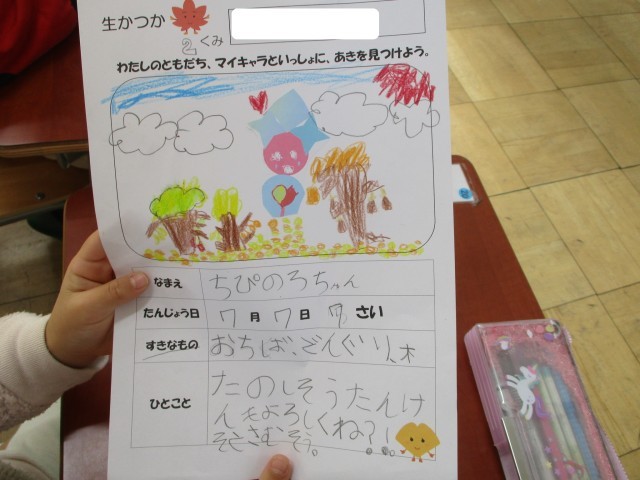 生かつか
2くみ
わたしのともだち、マイキャラといっしょに、あきを見つけよう。
なまえ ちぴのろちゃん
たんじょう日 7月7日 7さい
すきなもの おちば、どんぐり、木
ひとこと たのしそうたんけ
んもよろしくね?!
そとさむそう。